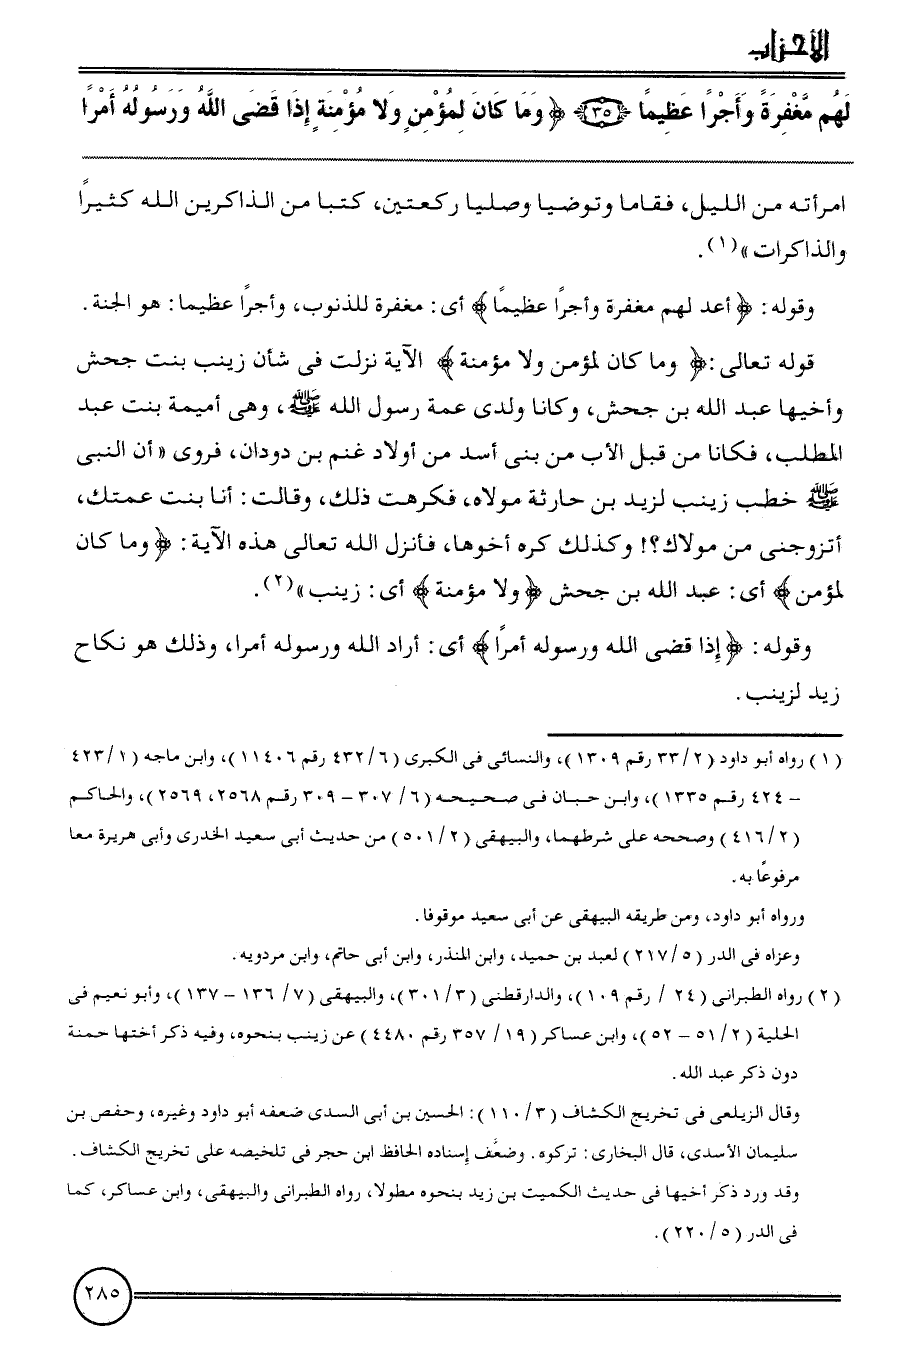 الأحزاب
لَهُم مَّغْفِرَةً وَأَجْرًا عَظِيمًا ﴿٣٥﴾ ﴿ وَمَا كَانَ لِمُؤْمِنٍ وَلَا مُؤْمِنَةٍ إِذَا قَضَى اللَّهُ وَرَسُولُهُ أَمْرًا
امرأته من الليل، فقاما وتوضيا وصليا ركعتين، كتبا من الذاكرين الله كثيرًا
والذاكرات»(١).
وقوله: ﴿ أعد لهم مغفرة وأجرًا عظيمًا﴾ أى: مغفرة للذنوب، وأجرًا عظيما: هو الجنة.
قوله تعالى:﴿ وما كان لمؤمن ولا مؤمنة ﴾ الآية نزلت فى شأن زينب بنت جحش
وأخيها عبد الله بن جحش، وكانا ولدى عمة رسول الله ﷺ، وهى أميمة بنت عبد
المطلب، فكانا من قبل الأب من بنى أسد من أولاد غنم بن دودان، فروى «أن النبى
ﷺ خطب زينب لزيد بن حارثة مولاه، فكرهت ذلك، وقالت: أنا بنت عمتك،
أتزوجنى من مولاك؟! وكذلك كره أخوها، فأنزل الله تعالى هذه الآية: ﴿ وما كان
لمؤمن﴾ أى: عبد الله بن جحش ﴿ولا مؤمنة﴾ أى: زينب»(٢).
وقوله: ﴿إذا قضى الله ورسوله أمرًا﴾ أى: أراد الله ورسوله أمرا، وذلك هو نكاح
زيد لزينب.
(١) رواه أبو داود (٣٣/٢ رقم ١٣٠٩)، والنسائى فى الكبرى (٤٣٢/٦ رقم ١١٤٠٦)، وابن ماجه (٤٢٣/١
– ٤٢٤ رقم ١٣٣٥)، وابن حبان فى صحيحه (٦/ ٣٠٧ – ٣٠٩ رقم ٢٥٦٨، ٢٥٦٩)، والحاكم
(٤١٦/٢) وصححه على شرطهما، والبيهقى (٥٠١/٢) من حديث أبى سعيد الخدرى وأبى هريرة معا
مرفوعًا به.
ورواه أبو داود، ومن طريقه البيهقى عن أبى سعيد موقوفا.
وعزاه فى الدر (٢١٧/٥) لعبد بن حميد، وابن المنذر، وابن أبى حاتم، وابن مردويه.
(٢) رواه الطبرانى (٢٤ / رقم ١٠٩)، والدارقطنى (٣٠١/٣)، والبيهقى (٧/ ١٣٦ – ١٣٧)، وأبو نعيم فى
الحلية (٥١/٢ – ٥٢)، وابن عساكر (١٩/ ٣٥٧ رقم ٤٤٨٠) عن زينب بنحوه، وفيه ذكر أختها حمنة
دون ذكر عبد الله.
وقال الزيلعى فى تخريج الكشاف (١١٠/٣): الحسين بن أبى السدى ضعفه أبو داود وغيره، وحفص بن
سليمان الأسدى، قال البخارى: تركوه. وضعَّف إسناده الحافظ ابن حجر فى تلخيصه على تخريج الكشاف.
وقد ورد ذكر أخيها فى حديث الكميت بن زيد بنحوه مطولا، رواه الطبرانى والبيهقى، وابن عساكر، كما
فى الدر (٢٢٠/٥).
٢٨٥